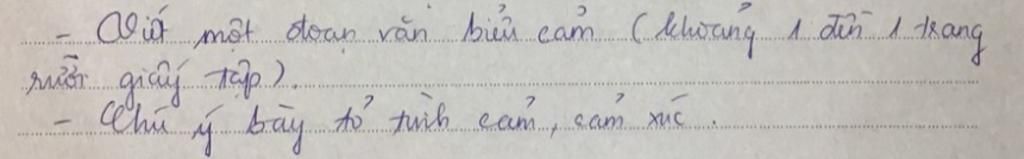 - Viết một đoạn văn biểu cảm (khoảng 1 đến 1 trang
rưỡi giấy tập).
- Chú ý bày tỏ tình cảm, cảm xúc.